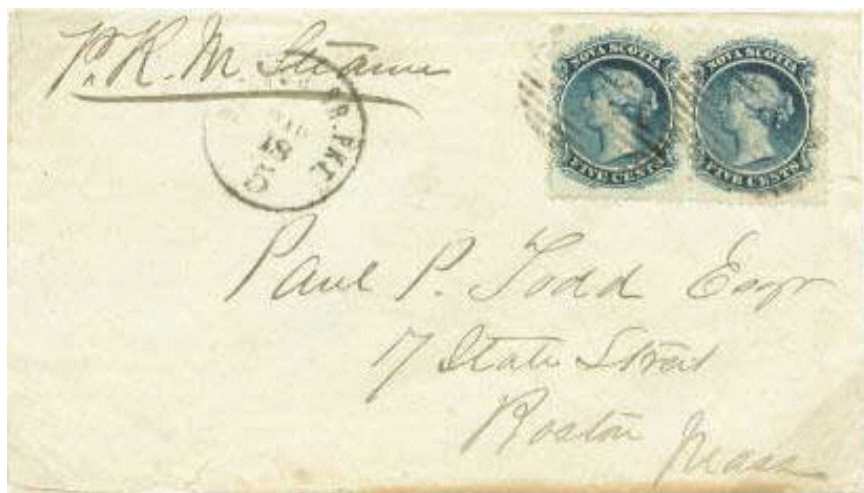 Pr. R. M. Steamer
NOVA SCOTIA
FIVE CENTS
NOVA SCOTIA
FIVE CENTS
BR. PKT
10
Paul P. Todd Esqr
17 State Street
Boston
Mass